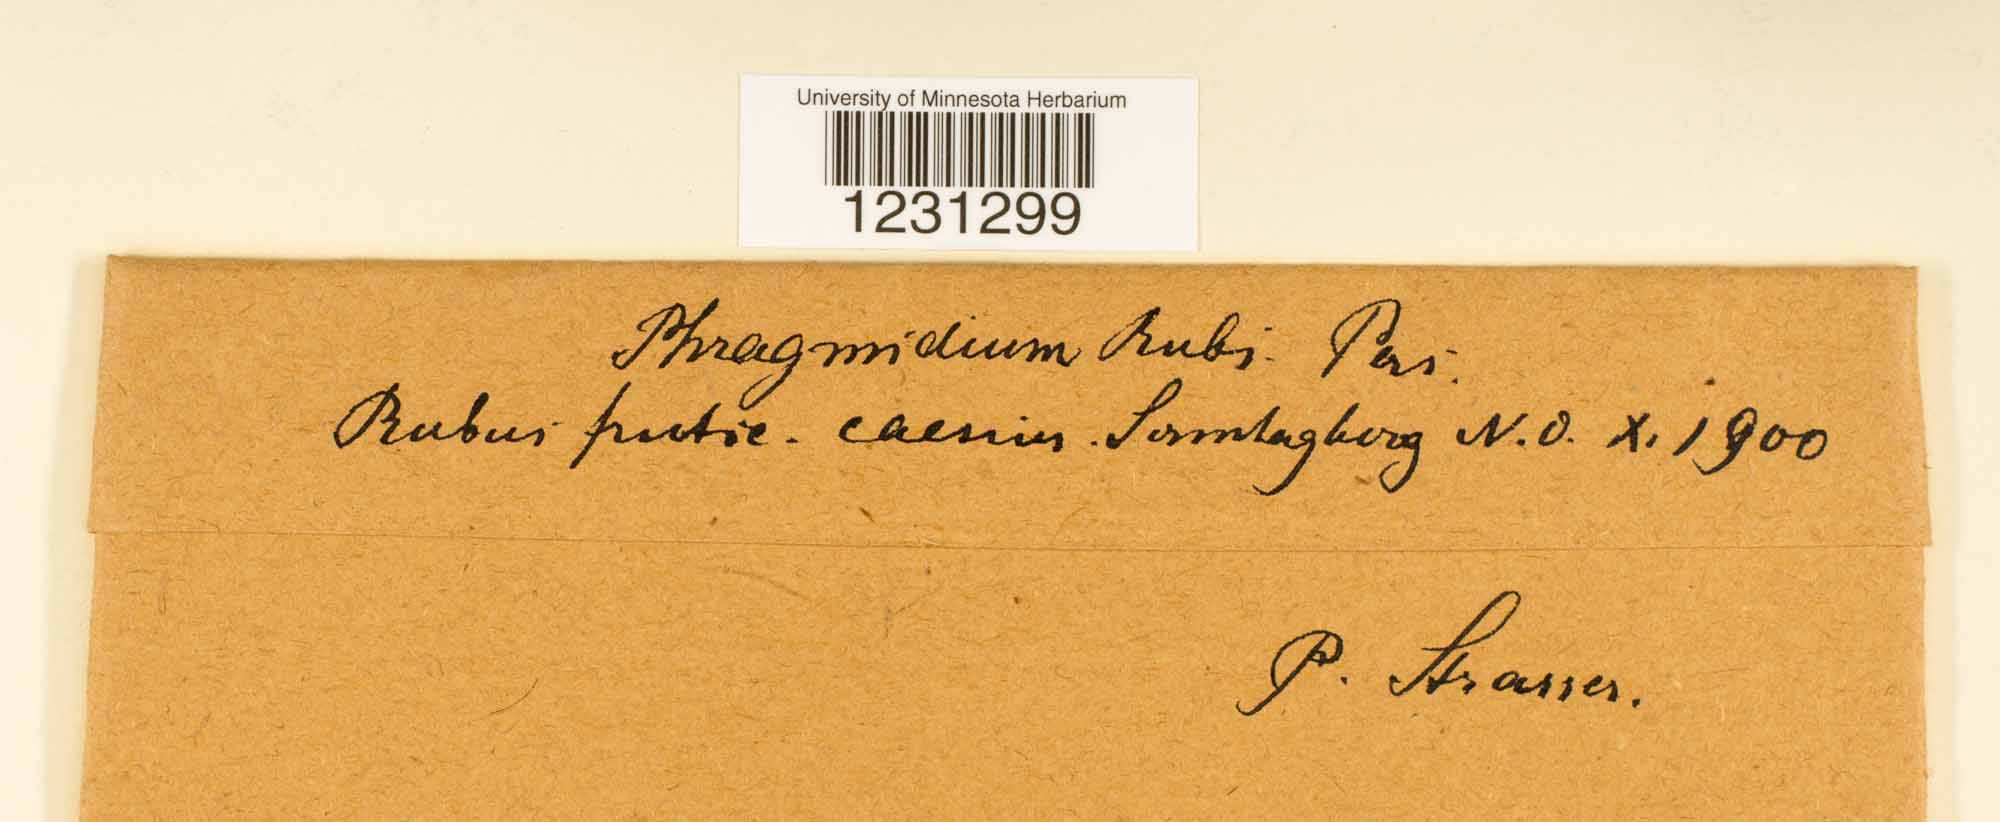 University of Minnesota Herbarium
1231299
Phragmidium Rubi. Pers.
Rubus frutic. caesius. Sonntagberg N.Ö. X. 1900
P. Strasser.